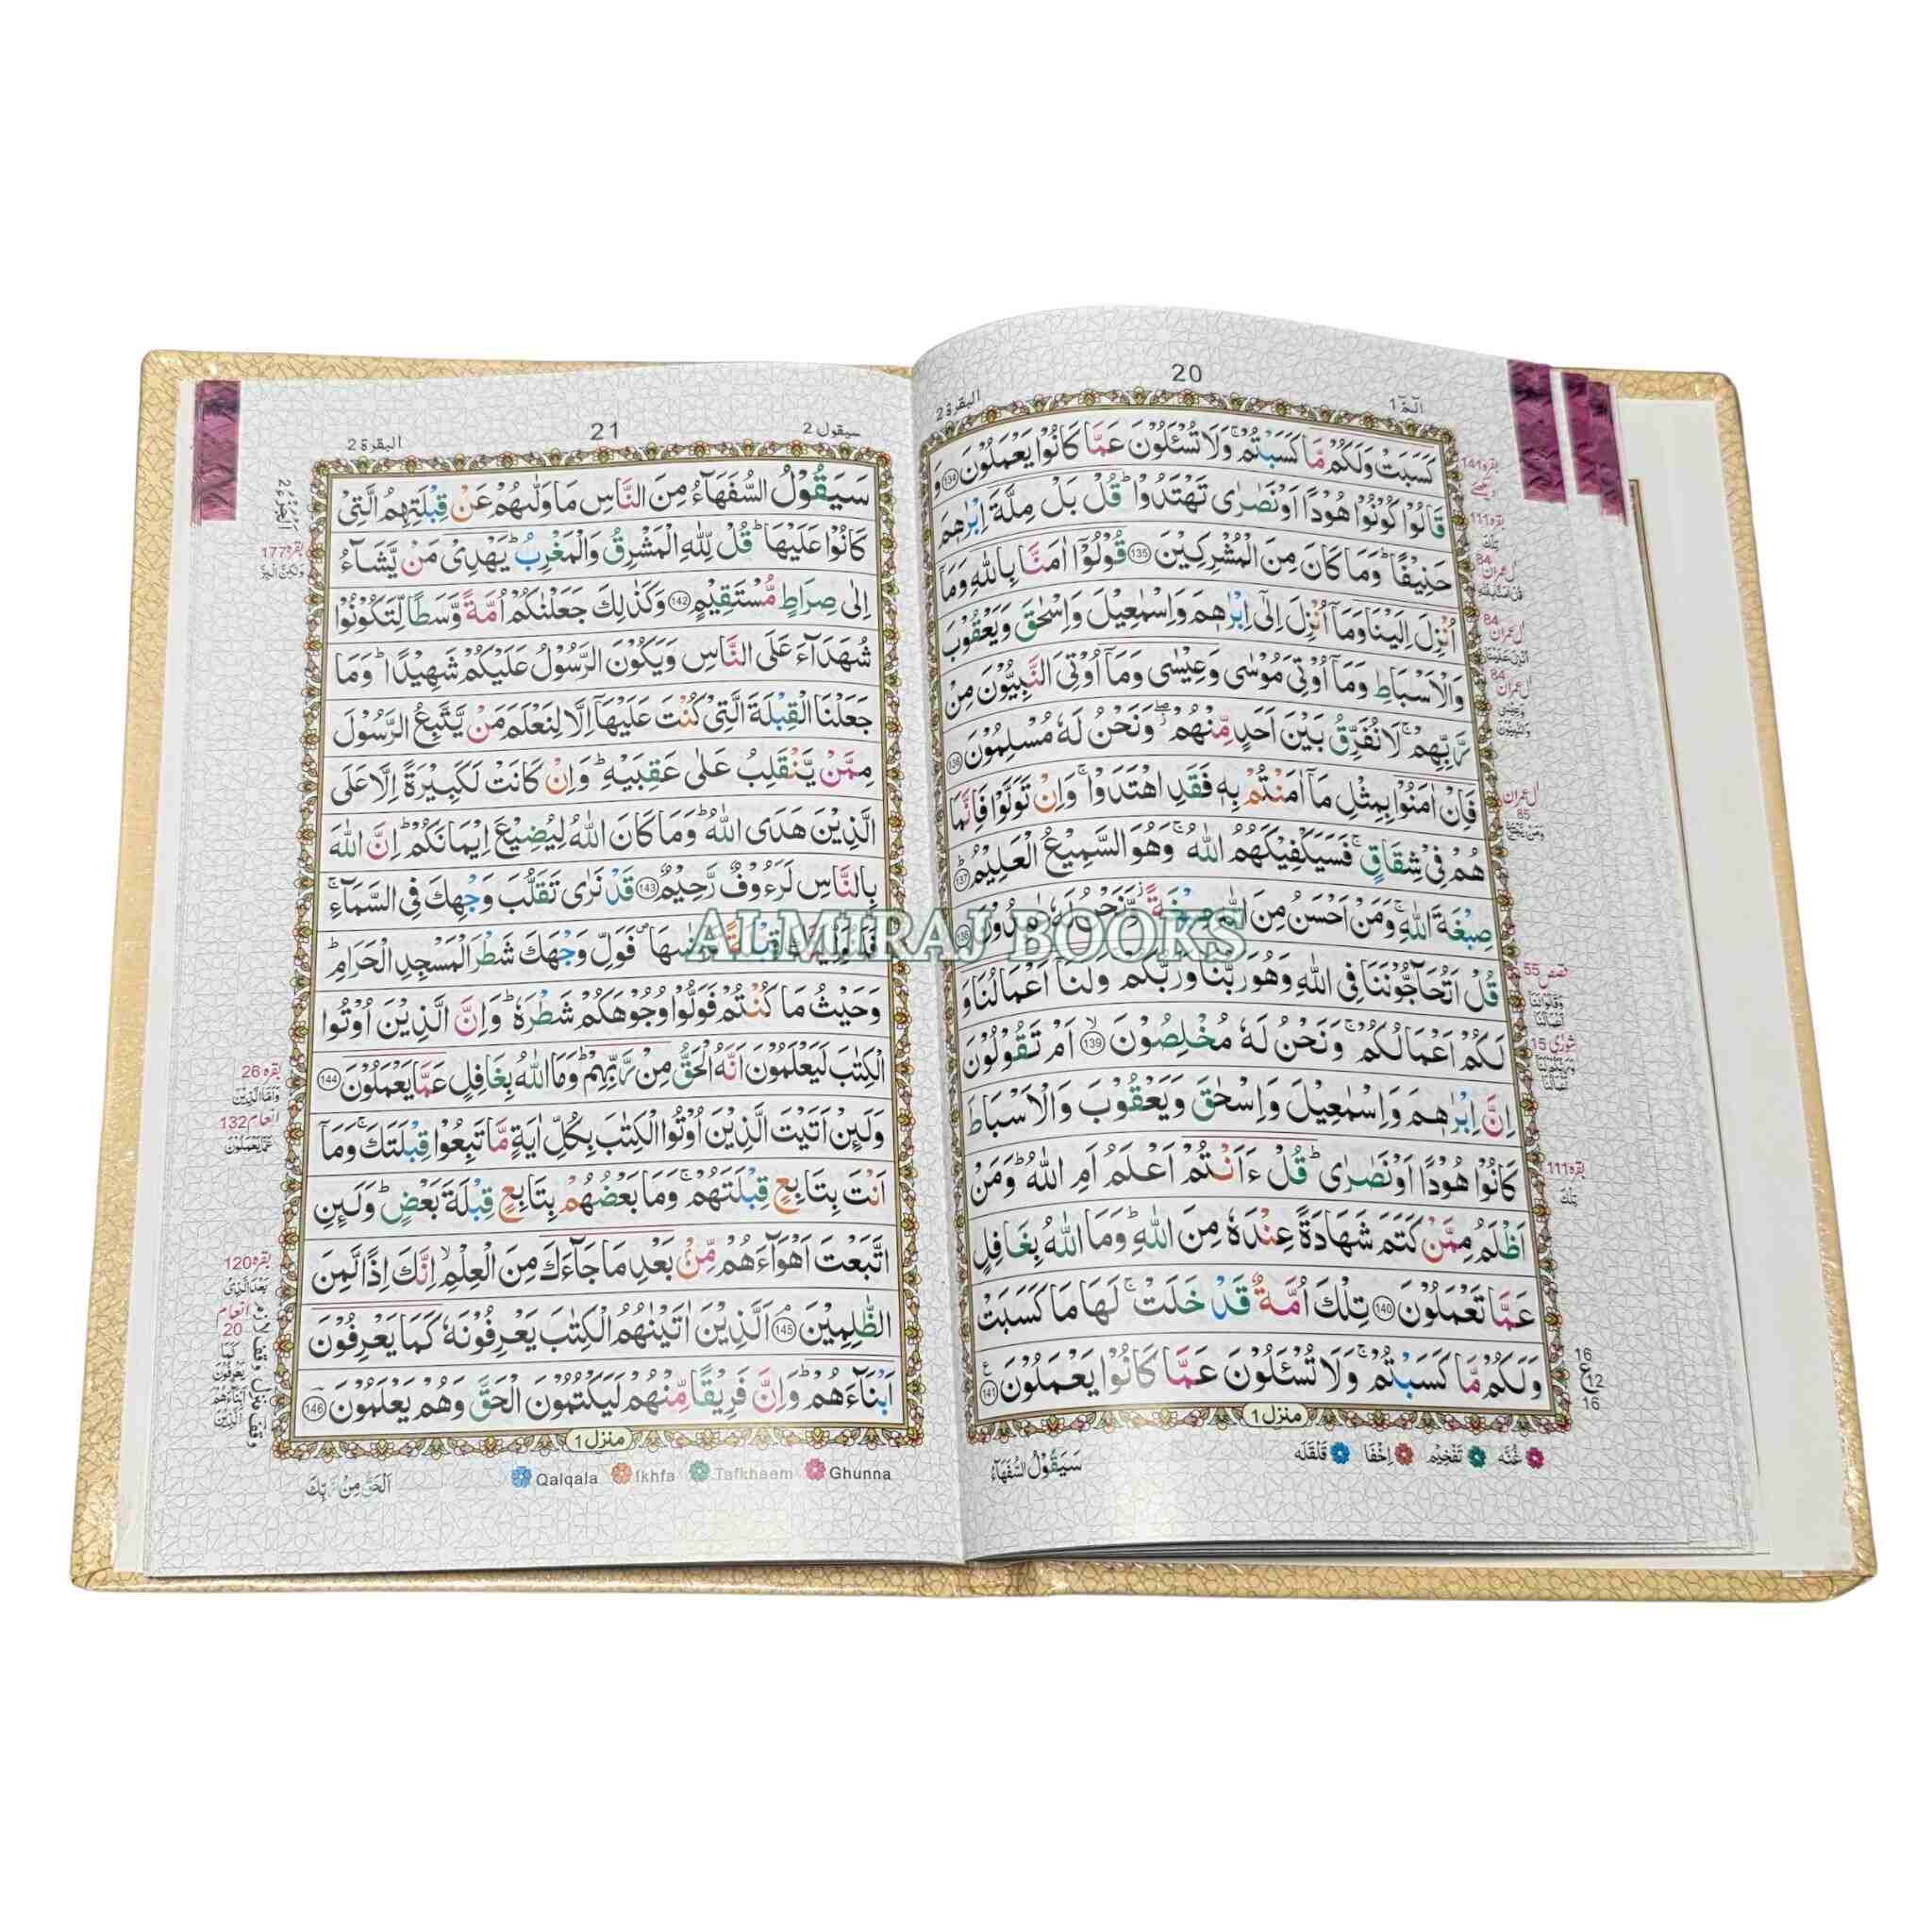 20
البقرة 2
الٓمّٓ 1
كَسَبَتْ وَلَكُمْ مَّا كَسَبْتُمْ ۚ وَلَا تُسْـَٔلُوْنَ عَمَّا كَانُوْا يَعْمَلُوْنَ 134 وَ
قَالُوْا كُوْنُوْا هُوْدًا اَوْ نَصٰرٰى تَهْتَدُوْا ؕ قُلْ بَلْ مِلَّةَ اِبْرٰهٖمَ
حَنِيْفًا ؕ وَمَا كَانَ مِنَ الْمُشْرِكِيْنَ 135 قُوْلُوْٓا اٰمَنَّا بِاللّٰهِ وَمَآ
اُنْزِلَ اِلَيْنَا وَمَآ اُنْزِلَ اِلٰٓى اِبْرٰهٖمَ وَاِسْمٰعِيْلَ وَاِسْحٰقَ وَيَعْقُوْبَ
وَالْاَسْبَاطِ وَمَآ اُوْتِيَ مُوْسٰى وَعِيْسٰى وَمَآ اُوْتِيَ النَّبِيُّوْنَ مِنْ
رَّبِّهِمْ ۚ لَا نُفَرِّقُ بَيْنَ اَحَدٍ مِّنْهُمْ ۖ وَنَحْنُ لَهٗ مُسْلِمُوْنَ 136
فَاِنْ اٰمَنُوْا بِمِثْلِ مَآ اٰمَنْتُمْ بِهٖ فَقَدِ اهْتَدَوْا ۚ وَاِنْ تَوَلَّوْا فَاِنَّمَا
هُمْ فِيْ شِقَاقٍ ۚ فَسَيَكْفِيْكَهُمُ اللّٰهُ ۚ وَهُوَ السَّمِيْعُ الْعَلِيْمُ 137
صِبْغَةَ اللّٰهِ ۚ وَمَنْ اَحْسَنُ مِنَ اللّٰهِ صِبْغَةً ۡ وَّنَحْنُ لَهٗ عٰبِدُوْنَ 138
قُلْ اَتُحَآجُّوْنَنَا فِي اللّٰهِ وَهُوَ رَبُّنَا وَرَبُّكُمْ ۚ وَلَنَآ اَعْمَالُنَا وَ
لَكُمْ اَعْمَالُكُمْ ۚ وَنَحْنُ لَهٗ مُخْلِصُوْنَ ۙ 139 اَمْ تَقُوْلُوْنَ
اِنَّ اِبْرٰهٖمَ وَاِسْمٰعِيْلَ وَاِسْحٰقَ وَيَعْقُوْبَ وَالْاَسْبَاطَ
كَانُوْا هُوْدًا اَوْ نَصٰرٰى ؕ قُلْ ءَاَنْتُمْ اَعْلَمُ اَمِ اللّٰهُ ؕ وَمَنْ
اَظْلَمُ مِمَّنْ كَتَمَ شَهَادَةً عِنْدَهٗ مِنَ اللّٰهِ ؕ وَمَا اللّٰهُ بِغَافِلٍ
عَمَّا تَعْمَلُوْنَ 140 تِلْكَ اُمَّةٌ قَدْ خَلَتْ ۚ لَهَا مَا كَسَبَتْ
وَلَكُمْ مَّا كَسَبْتُمْ ۚ وَلَا تُسْـَٔلُوْنَ عَمَّا كَانُوْا يَعْمَلُوْنَ 141
منزل 1
غُنَّه تَفْخِيْم اِخْفَا قَلْقَلَه
سَيَقُوْلُ السُّفَهَآءُ
بقره 141
بقره 111
تِلْكَ
اٰل عمران 84
اٰل عمران 84
اٰل عمران 84
اٰل عمران 85
قصص 55
شورٰى 15
بقره 111
تِلْكَ
16
ع 12
16
21
سيقول 2
البقرة 2
سَيَقُوْلُ السُّفَهَآءُ مِنَ النَّاسِ مَا وَلّٰىهُمْ عَنْ قِبْلَتِهِمُ الَّتِيْ
كَانُوْا عَلَيْهَا ؕ قُلْ لِّلّٰهِ الْمَشْرِقُ وَالْمَغْرِبُ ؕ يَهْدِيْ مَنْ يَّشَآءُ
اِلٰى صِرَاطٍ مُّسْتَقِيْمٍ 142 وَكَذٰلِكَ جَعَلْنٰكُمْ اُمَّةً وَّسَطًا لِّتَكُوْنُوْا
شُهَدَآءَ عَلَى النَّاسِ وَيَكُوْنَ الرَّسُوْلُ عَلَيْكُمْ شَهِيْدًا ؕ وَمَا
جَعَلْنَا الْقِبْلَةَ الَّتِيْ كُنْتَ عَلَيْهَآ اِلَّا لِنَعْلَمَ مَنْ يَّتَّبِعُ الرَّسُوْلَ
مِمَّنْ يَّنْقَلِبُ عَلٰى عَقِبَيْهِ ؕ وَاِنْ كَانَتْ لَكَبِيْرَةً اِلَّا عَلَى
الَّذِيْنَ هَدَى اللّٰهُ ؕ وَمَا كَانَ اللّٰهُ لِيُضِيْعَ اِيْمَانَكُمْ ؕ اِنَّ اللّٰهَ
بِالنَّاسِ لَرَءُوْفٌ رَّحِيْمٌ 143 قَدْ نَرٰى تَقَلُّبَ وَجْهِكَ فِي السَّمَآءِ ۚ
فَلَنُوَلِّيَنَّكَ قِبْلَةً تَرْضٰىهَا ۪ فَوَلِّ وَجْهَكَ شَطْرَ الْمَسْجِدِ الْحَرَامِ ؕ
وَحَيْثُ مَا كُنْتُمْ فَوَلُّوْا وُجُوْهَكُمْ شَطْرَهٗ ؕ وَاِنَّ الَّذِيْنَ اُوْتُوا
الْكِتٰبَ لَيَعْلَمُوْنَ اَنَّهُ الْحَقُّ مِنْ رَّبِّهِمْ ؕ وَمَا اللّٰهُ بِغَافِلٍ عَمَّا يَعْمَلُوْنَ 144
وَلَئِنْ اَتَيْتَ الَّذِيْنَ اُوْتُوا الْكِتٰبَ بِكُلِّ اٰيَةٍ مَّا تَبِعُوْا قِبْلَتَكَ ۚ وَمَآ
اَنْتَ بِتَابِعٍ قِبْلَتَهُمْ ۚ وَمَا بَعْضُهُمْ بِتَابِعٍ قِبْلَةَ بَعْضٍ ؕ وَلَئِنِ
اتَّبَعْتَ اَهْوَآءَهُمْ مِّنْۢ بَعْدِ مَا جَآءَكَ مِنَ الْعِلْمِ ۙ اِنَّكَ اِذًا لَّمِنَ
الظّٰلِمِيْنَ ۘ 145 اَلَّذِيْنَ اٰتَيْنٰهُمُ الْكِتٰبَ يَعْرِفُوْنَهٗ كَمَا يَعْرِفُوْنَ
اَبْنَآءَهُمْ ؕ وَاِنَّ فَرِيْقًا مِّنْهُمْ لَيَكْتُمُوْنَ الْحَقَّ وَهُمْ يَعْلَمُوْنَ 146
منزل 1
Qalqala Ikhfa Tafkheem Ghunna
اَلْحَقُّ مِنْ رَّبِّكَ
اَلْجُزْءُ 2
بقره 177
بقره 26
وَاَمَّا الَّذِيْنَ
انعام 132
عَمَّا يَعْمَلُوْنَ
بقره 120
بَعْدَ الَّذِيْ
انعام 20
كَمَا
يَعْرِفُوْنَ
اَبْنَآءَهُمْ
اَلَّذِيْنَ
ALMIRAJ BOOKS